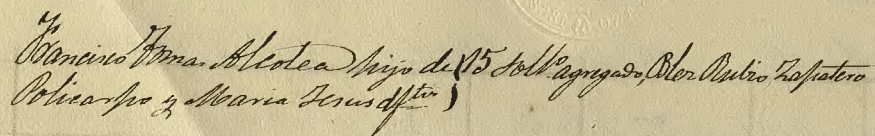 Francisco Tomas Alcolea hijo de (15 Solt.º agregado, Bler Rubio Zapatero
Policarpo y Maria Jesus dftos )